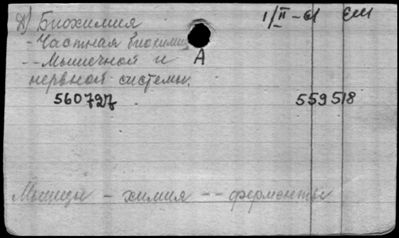 Ж) Биохимия 1/II-61 ЕМ
- Частная биохимия
-- Мышечной и А
нервной системы.
560727 559518
Мышцы - химия -- ферменты